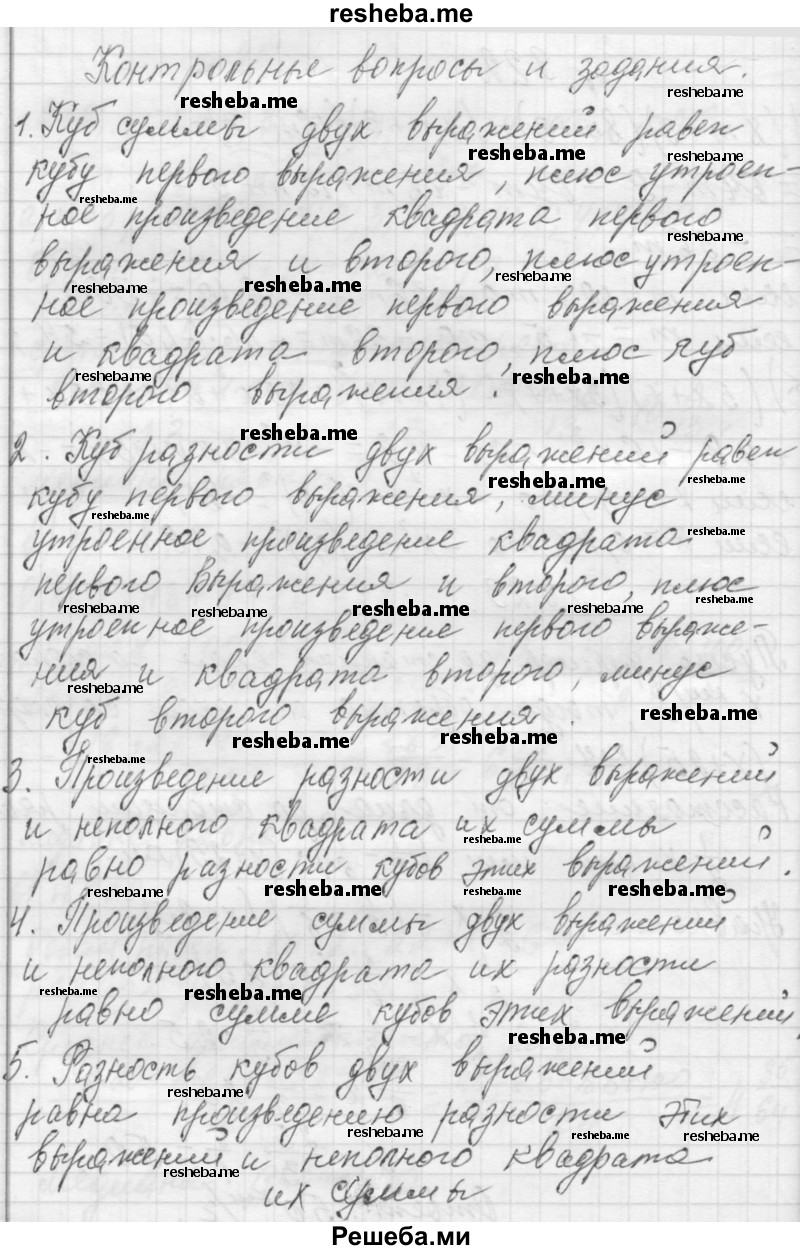 resheba.me
Контрольные вопросы и задания.
1. Куб суммы двух выражений равен
кубу первого выражения, плюс утроен-
ное произведение квадрата первого
выражения и второго, плюс утроен-
ное произведение первого выражения
и квадрата второго, плюс куб
второго выражения.
2. Куб разности двух выражений равен
кубу первого выражения, минус
утроенное произведение квадрата
первого выражения и второго, плюс
утроенное произведение первого выраже-
ния и квадрата второго, минус
куб второго выражения.
3. Произведение разности двух выражений
и неполного квадрата их суммы
равно разности кубов этих выражений.
4. Произведение суммы двух выражений
и неполного квадрата их разности
равно сумме кубов этих выражений.
5. Разность кубов двух выражений
равна произведению разности этих
выражений и неполного квадрата
их суммы
Решеба.ми